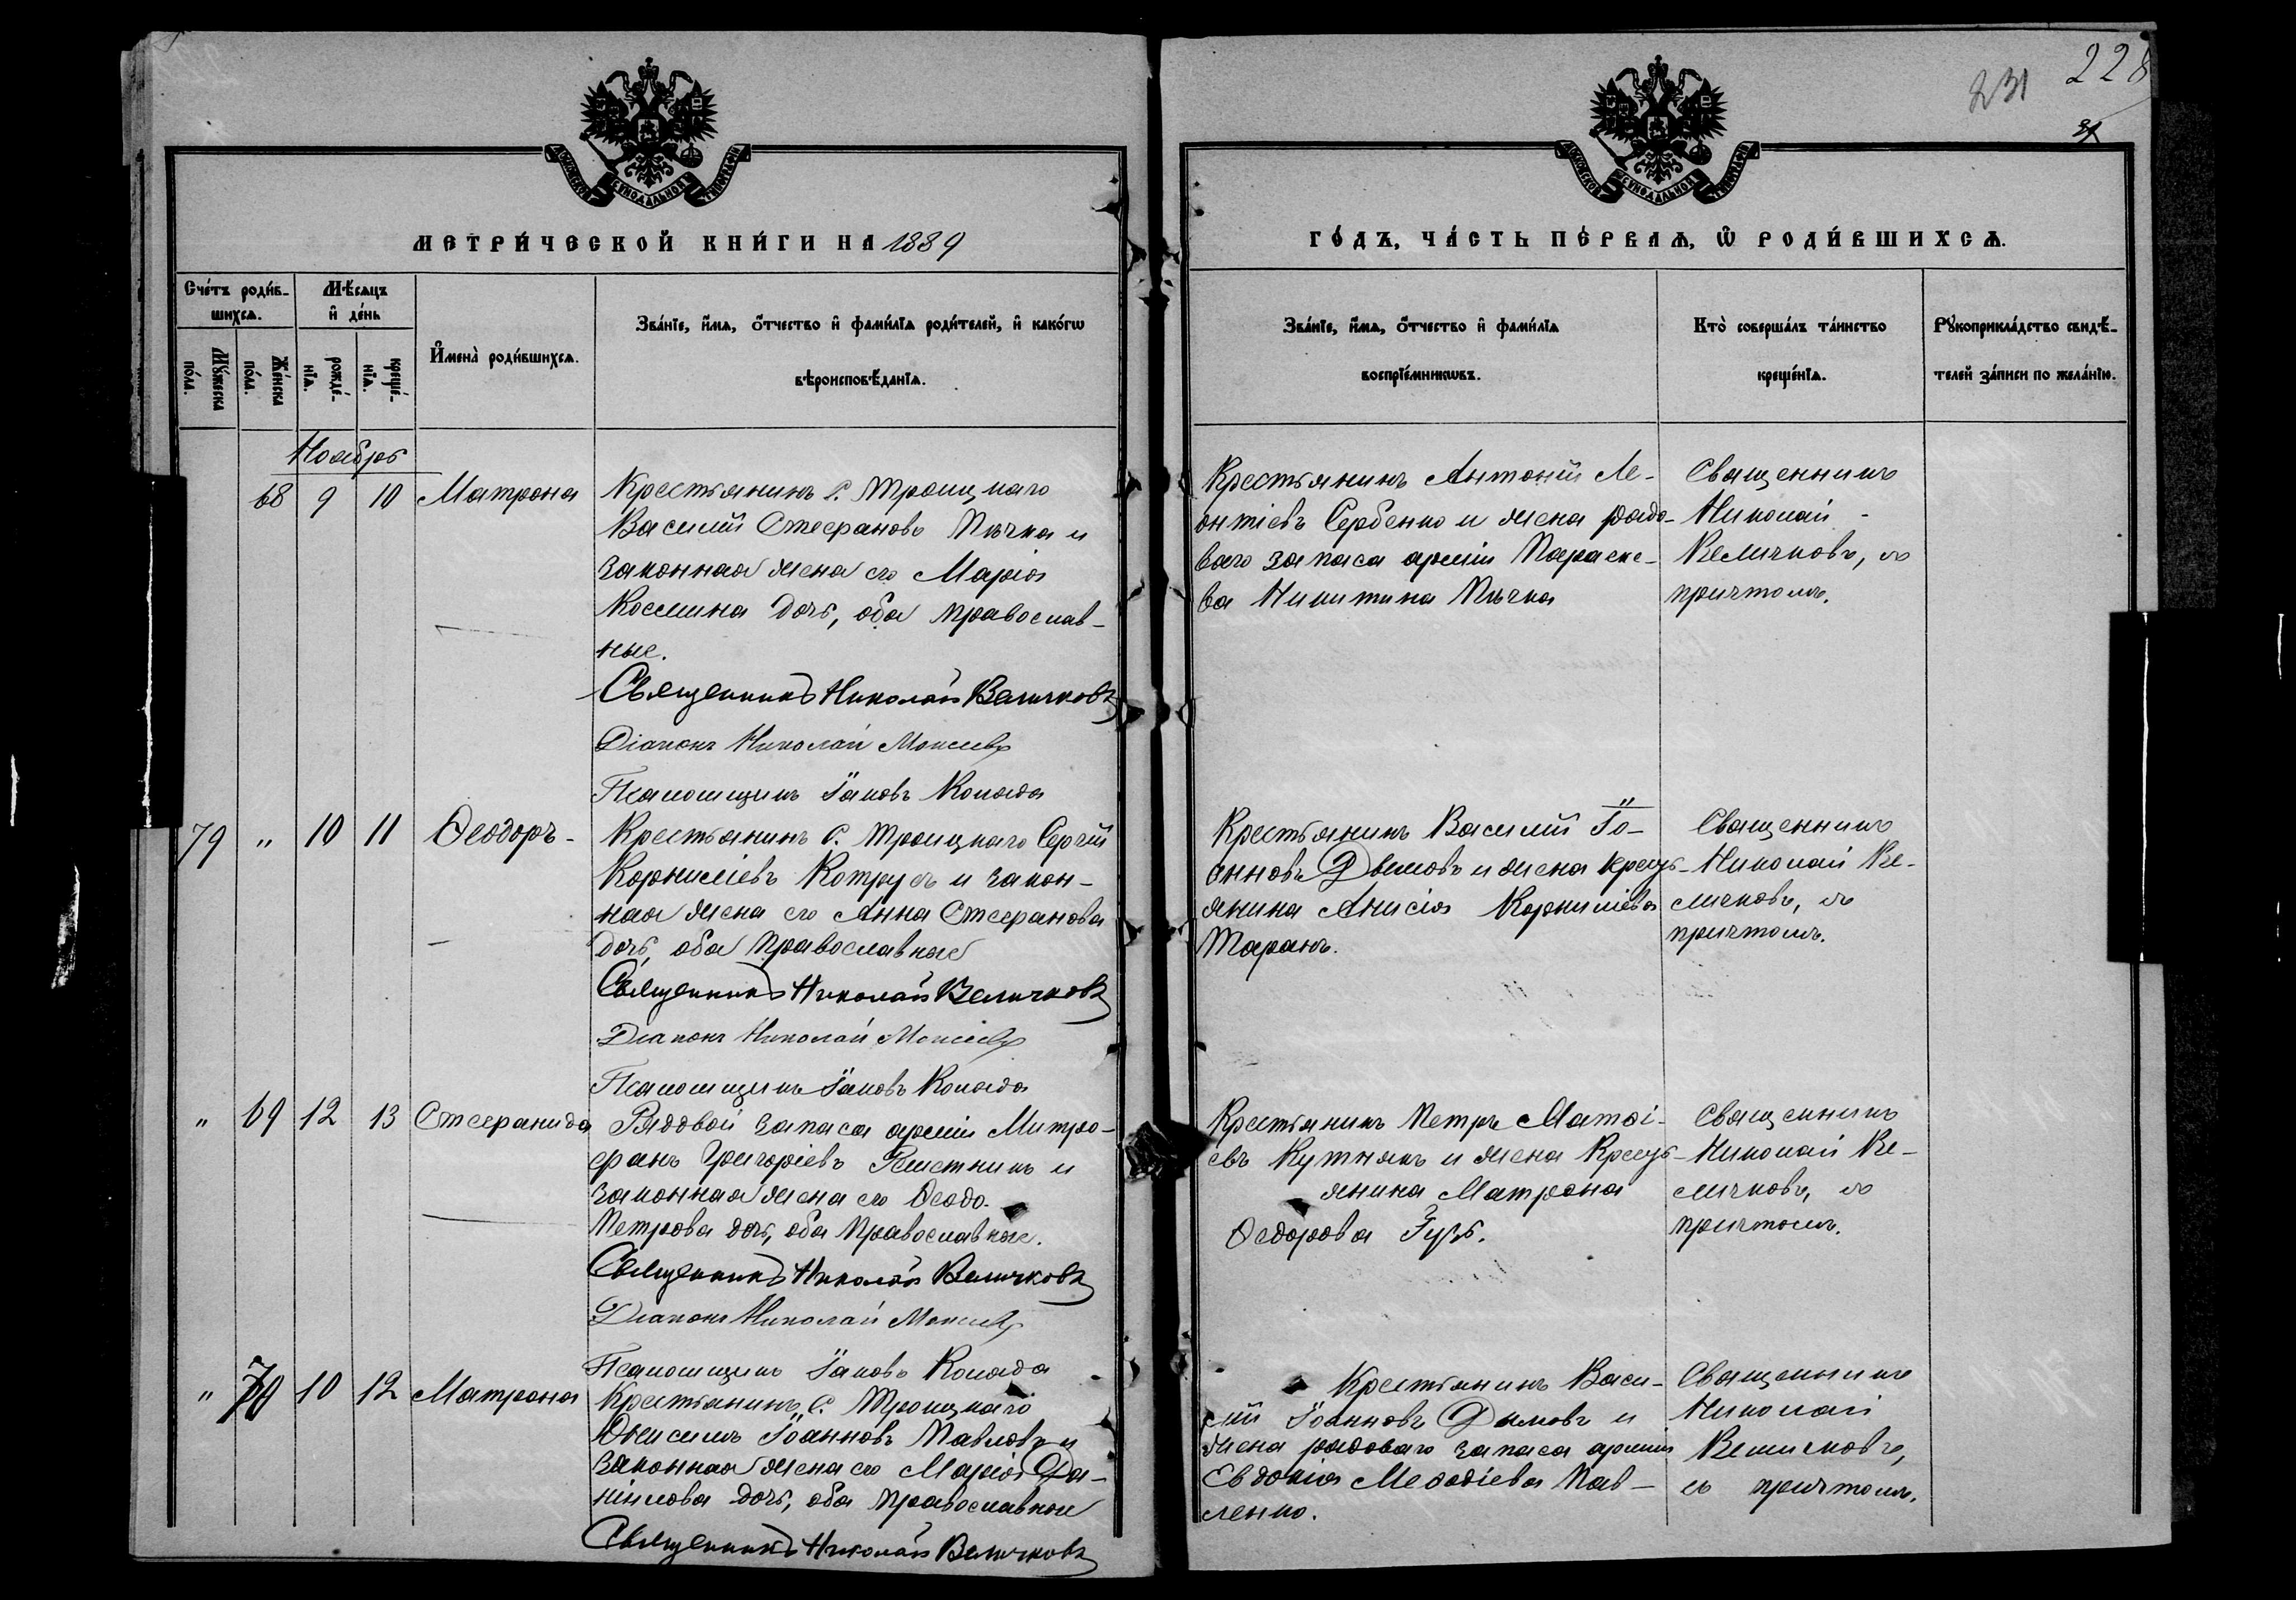 231
228
31
МОСКОВСКОЙ СѴНОДАЛЬНОЙ ТИПОГРАФІИ
МОСКОВСКОЙ СѴНОДАЛЬНОЙ ТИПОГРАФІИ
МЕТРИ́ЧЕСКОЙ КНИ́ГИ НА 1889
ГО́ДЪ, ЧА́СТЬ ПЕ́РВАѦ, Ѡ҆ РОДИ́ВШИХСѦ.
Сче́тъ роди́в-
шихсѧ.
Мꙋ́жеска по́ла.
Же́нска по́ла.
Мѣ́сѧцъ
и҆ де́нь
рожде́-
нїѧ.
креще́-
нїѧ.
И҆мена̀ роди́вшихсѧ.
Зва́нїе, и҆́мѧ, ѻ҆́тчество и҆ фами́лїѧ роди́телей, и҆ како́гѡ
вѣроисповѣ́данїѧ.
Зва́нїе, и҆́мѧ, ѻ҆́тчество и҆ фами́лїѧ
воспрїе́мникѡвъ.
Кто̀ соверша́лъ та́инство
креще́нїѧ.
Рꙋкоприкла́дство свидѣ́-
телей за́писи по жела́нїю.
Ноябрь
68 9 10 Матрона
Крестьянинъ с. Троицкаго
Василій Стефановъ Пѣчка и
законная жена его Марія
Космина дочь, оба православ-
ные.
Священникъ Николай Величковъ
Діаконъ Николай Моисеевъ
Псаломщикъ Іаковъ Коляда
Крестьянинъ Антоній Ле-
онтіевъ Сербенко и жена рядо-
ваго запаса арміи Параске-
ва Никитина Пѣчка
Священникъ
Николай
Величковъ, съ
причтомъ.
79 " 10 11 Ѳеодоръ -
Крестьянинъ с. Троицкаго Сергій
Корниліевъ Котрусъ и закон-
ная жена его Анна Стефанова
дочь, оба православные
Священникъ Николай Величковъ
Діаконъ Николай Моисеевъ
Псаломщикъ Іаковъ Коляда
Крестьянинъ Василій Іо-
анновъ Дымовъ и жена крест-
янина Анисія Корниліева
Таранъ.
Священникъ
Николай Ве-
личковъ, съ
причтомъ.
" 69 12 13 Стефанида
Рядовой запаса арміи Митро-
фанъ Григоріевъ Решетникъ и
законная жена его Ѳеодо.
Петрова дочь, оба православные.
Священникъ Николай Величковъ
Діаконъ Николай Моисеевъ
Псаломщикъ Іаковъ Коляда
Крестьянинъ Петръ Матѳі-
евъ Кутнякъ и жена Крест-
янина Матрона
Ѳедорова Гузь.
Священникъ
Николай Ве-
личковъ, съ
причтомъ.
" 70 10 12 Матрона
Крестьянинъ с. Троицкаго
Онисимъ Іоанновъ Павловъ и
законная жена его Марія Да-
ніилова дочь, оба православные
Священникъ Николай Величковъ
Крестьянинъ Васи-
лій Іоанновъ Дымовъ и
жена рядоваго запаса арміи
Евдокія Меѳодіева Пав-
ленко.
Священникъ
Николай
Величковъ,
съ причтомъ.